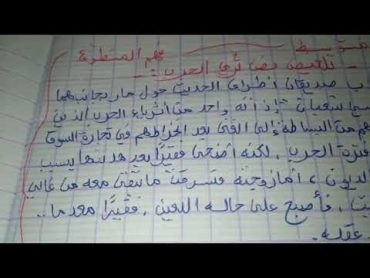 متوسط فهم المنطوق
- تلخيص نص ثري الحرب :
صديقان أطراف الحديث حول جار بجانبهما
إذ أنه واحد من أثرياء الحرب الذين
من البساطة إلى الغنى بعد انخراطهم في تجارة السوق
فترة الحرب . لكنه أضحى فقيرًا بعد هدنتها بسبب
الديون ، أما زوجته فسرقت ما تبقى معه من غالي
فأصبح على حاله اللعين ، فقيرًا معدما ..
عقله .